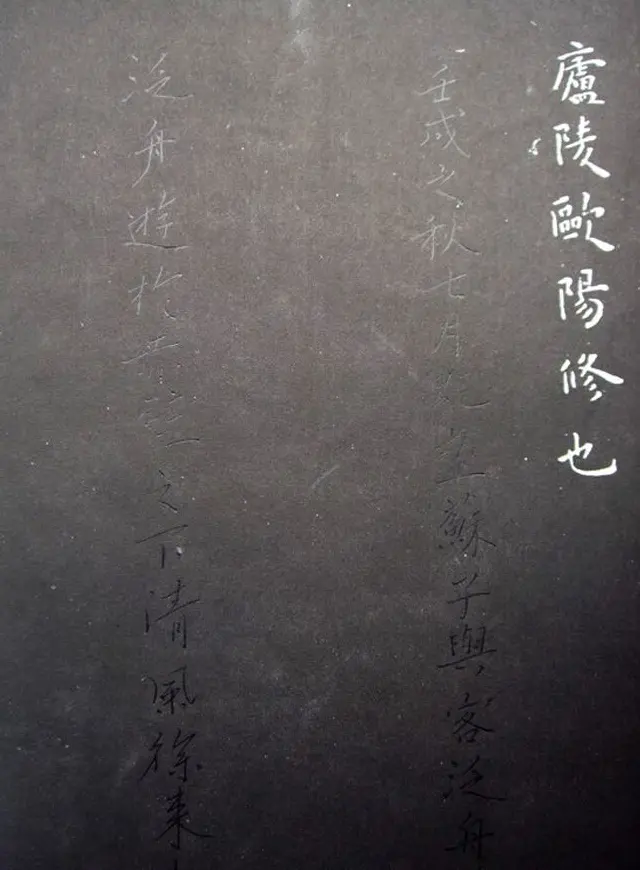 廬陵歐陽修也
壬戌之秋七月既望蘇子與客泛舟
泛舟遊於赤壁之下清風徐來